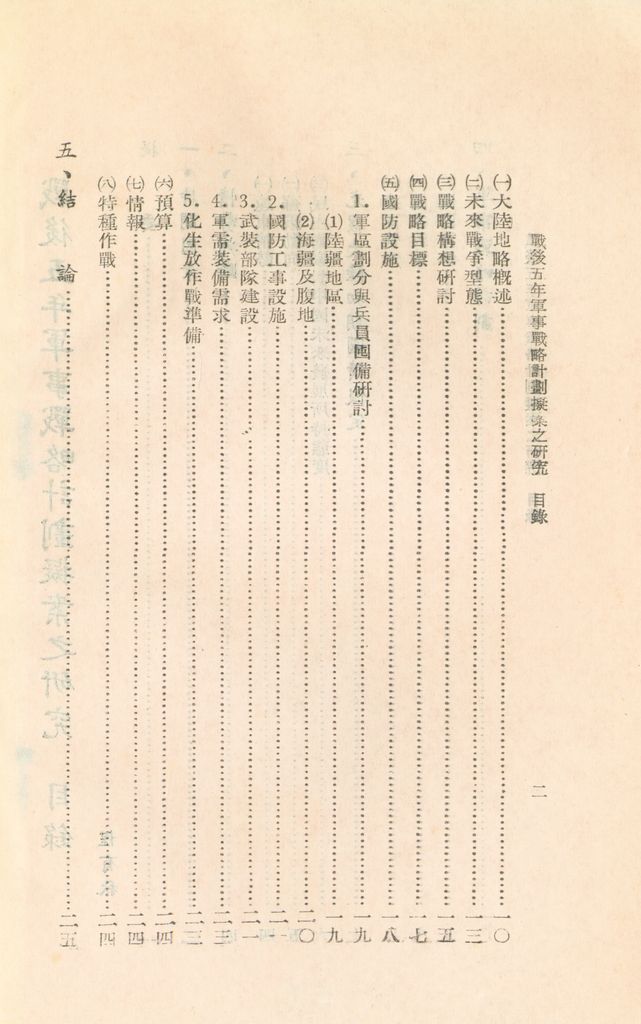 戰後五年軍事戰略計劃擬案之研究 目錄
二
㈠大陸地略概述……一〇
㈡未來戰爭型態……一三
㈢戰略構想研討……一五
㈣戰略目標……一七
㈤國防設施……一八
1.軍區劃分與兵員囤備研討……一九
⑴陸疆地區……一九
⑵海疆及腹地……二〇
2.國防工事設施……二一
3.武裝部隊建設……二一
4.軍需裝備需求……二三
5.化生放作戰準備……二三
㈥預算……二四
㈦情報……二四
㈧特種作戰……二四
五、結論……二五